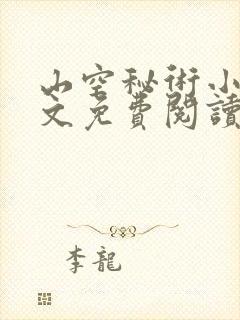 山空秘術小
文免費閱讀
李龍